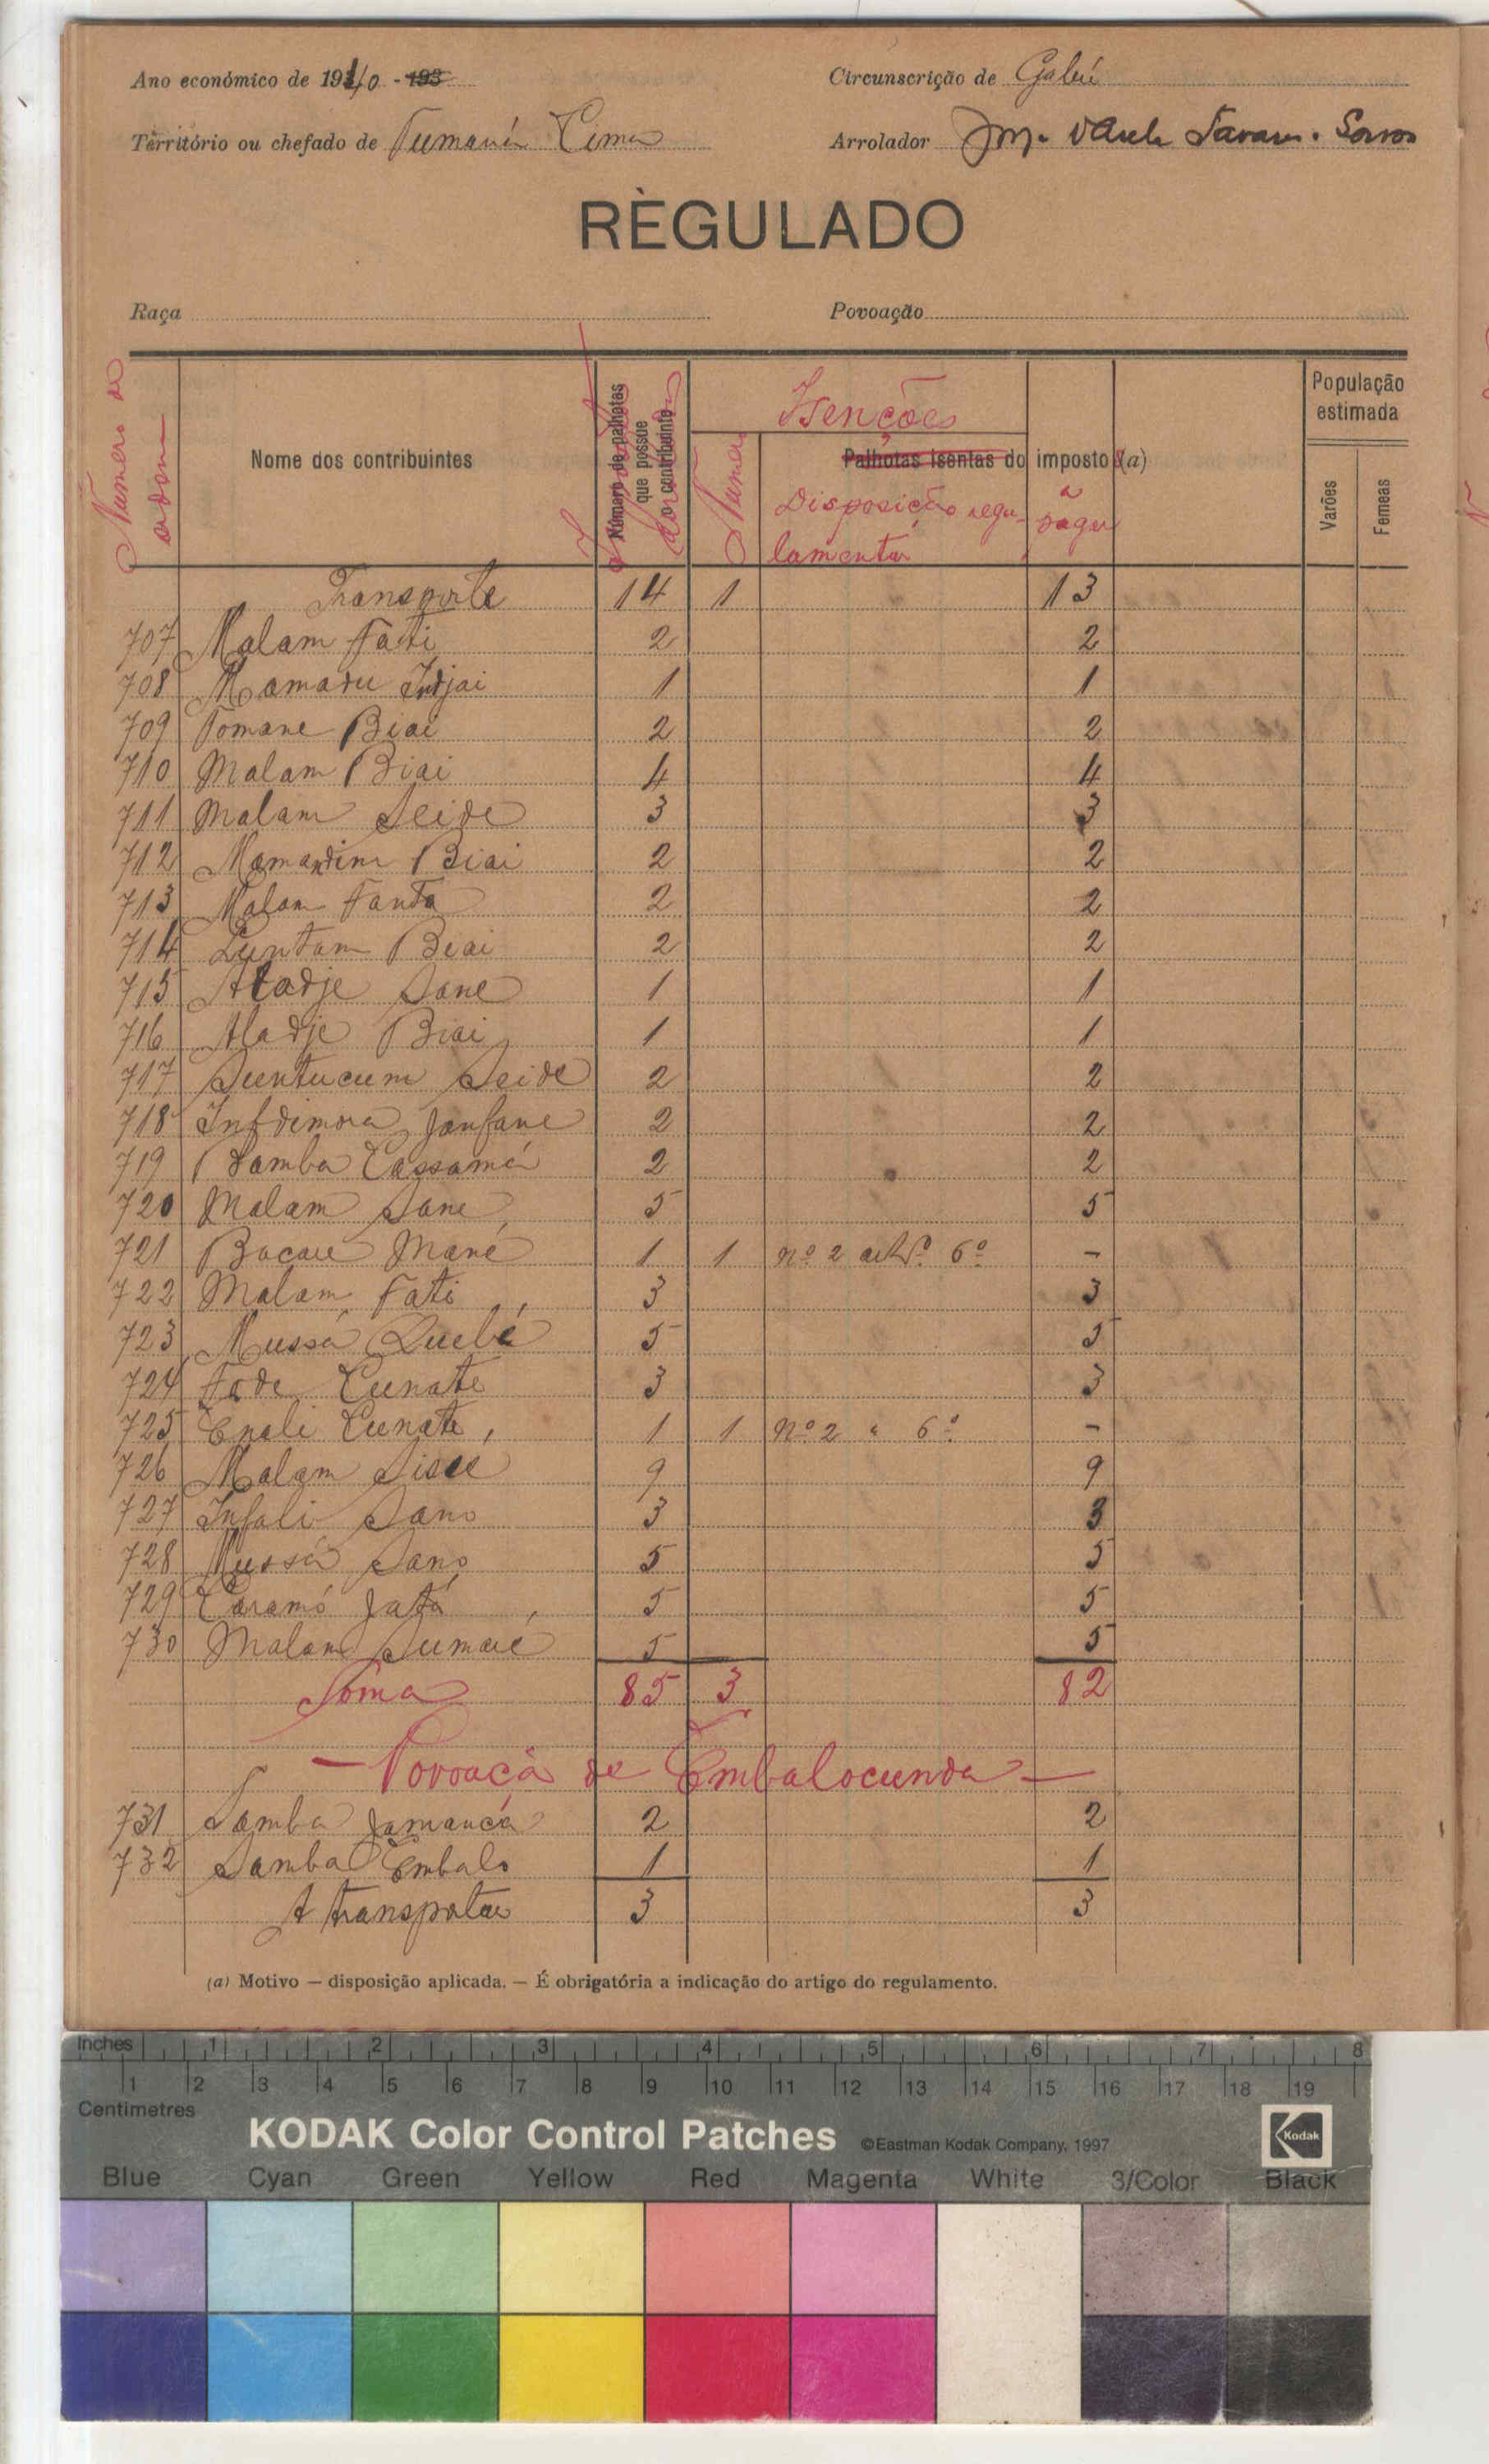 Ano económico de 1940 - 193
Circunscrição de Gabú
Território ou chefado de Tumaná Cima
Arrolador
RÈGULADO
Raça
Povoação
Numero de ordem
Nome dos contribuintes
Número de palhotas que possue o contribuinto
Isenções
Numero
Palhotas isentas do imposto (a)
Disposição regulamentar
a pagar
População estimada
Varões
Femeas
Transporte 14 1 13
707 Malam Fati 2 2
708 Mamadu Indjai 1 1
709 Tomane Biai 2 2
710 Malam Biai 4 4
711 Malam Seide 3 3
712 Mamandim Biai 2 2
713 Malam Fanta 2 2
714 Luntam Biai 2 2
715 Aladje Sane 1 1
716 Aladje Biai 1 1
717 Suntucum Seide 2 2
718 Janfane 2 2
719 Bamba Cassamá 2 2
720 Malam Sane 5 5
721 Bacar Mané 1 1 nº 2 artº. 6º -
722 Malam Fati 3 3
723 Mussá Quebé 5 5
724 Fode Cunate 3 3
725 Enali Cunate, 1 1 nº 2 " 6º -
726 Malam Sisse 9 9
727 Infali Sano 3 3
728 Mussá Sano 5 5
729 Caramó Jatá 5 5
730 Malam Sumaré 5 5
Soma 85 3 82
— Povoaçã de Embalocunda —
731 Samba Jamancá 2 2
732 Samba Embalo 1 1
A transportar 3 3
(a) Motivo — disposição aplicada. — É obrigatória a indicação do artigo do regulamento.
Inches 1 2 3 4 5 6 7 8
1 2 3 4 5 6 7 8 9 10 11 12 13 14 15 16 17 18 19
Centimetres
KODAK Color Control Patches ©Eastman Kodak Company, 1997 Kodak
Blue Cyan Green Yellow Red Magenta White 3/Color Black